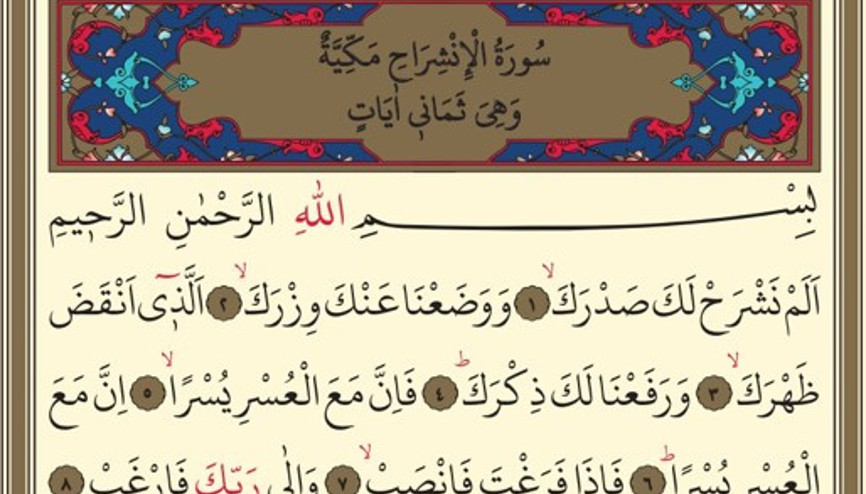 سُورَةُ الْاِنْشِرَاحِ مَكِّيَّةٌ
وَهِىَ ثَمَانِى اٰيَاتٍ
بِسْمِ اللّٰهِ الرَّحْمٰنِ الرَّحِيمِ
اَلَمْ نَشْرَحْ لَكَ صَدْرَكَۙ ﴿١﴾ وَوَضَعْنَا عَنْكَ وِزْرَكَۙ ﴿٢﴾ اَلَّذ۪ٓى اَنْقَضَ
ظَهْرَكَۙ ﴿٣﴾ وَرَفَعْنَا لَكَ ذِكْرَكَۜ ﴿٤﴾ فَاِنَّ مَعَ الْعُسْرِ يُسْرًاۙ ﴿٥﴾ اِنَّ مَعَ
الْعُسْرِ يُسْرًاۜ ﴿٦﴾ فَاِذَا فَرَغْتَ فَانْصَبْۙ ﴿٧﴾ وَاِلٰى رَبِّكَ فَارْغَبْ ﴿٨﴾